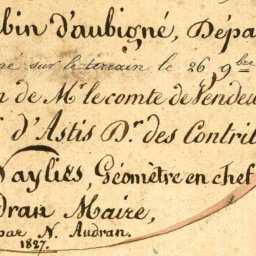 bin d'aubigné, Dépa
né sur le terrain le 26, 9.bre
n de Mr le comte de Vendeu
d'Astis Dr. des Contrib
Naylies, Géomètre en chef
dran Maire,
par N. Audran.
1827.